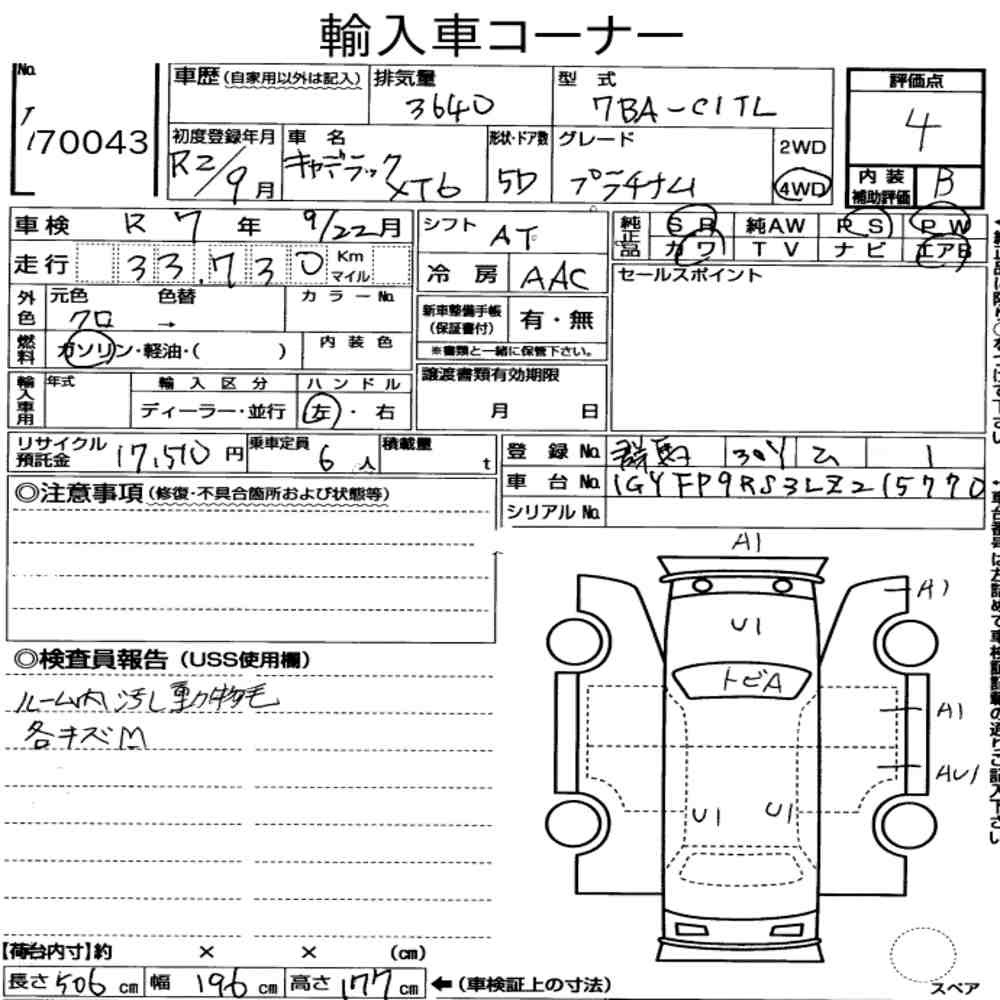 輸入車コーナー
No. 70043
車歴(自家用以外は記入) 排気量 3640 型式 7BA-C1TL 評価点 4
初度登録年月 R2/9月 車名 キャデラック XT6 形状・ドア数 5D グレード プラチナム 2WD 4WD 内装補助評価 B
車検 R7年 9/22月 シフト AT 純正品 SR 純AW PS PW
カワ TV ナビ エアB
走行 33,730 Km マイル 冷房 AAC セールスポイント
外色 元色 クロ 色替 → カラーNo. 新車整備手帳(保証書付) 有・無
※書類と一緒に保管下さい。
燃料 ガソリン・軽油・( ) 内装色
輸入車用 年式 輸入区分 ハンドル 譲渡書類有効期限
ディーラー・並行 左・右 月 日
リサイクル預託金 17,510円 乗車定員 6人 積載量 t 登録No. 群馬 304 ム 1
車台No. 1GYFP9RS3LZ215770
シリアルNo.
◎注意事項(修復・不具合箇所および状態等)
◎検査員報告(USS使用欄)
ルーム内汚し動物毛
各キズM
A1
A1
U1
トビA
A1
AU1
U1 U1
【荷台内寸】約 × × (cm)
長さ506cm 幅196cm 高さ177cm ←(車検証上の寸法)
スペア